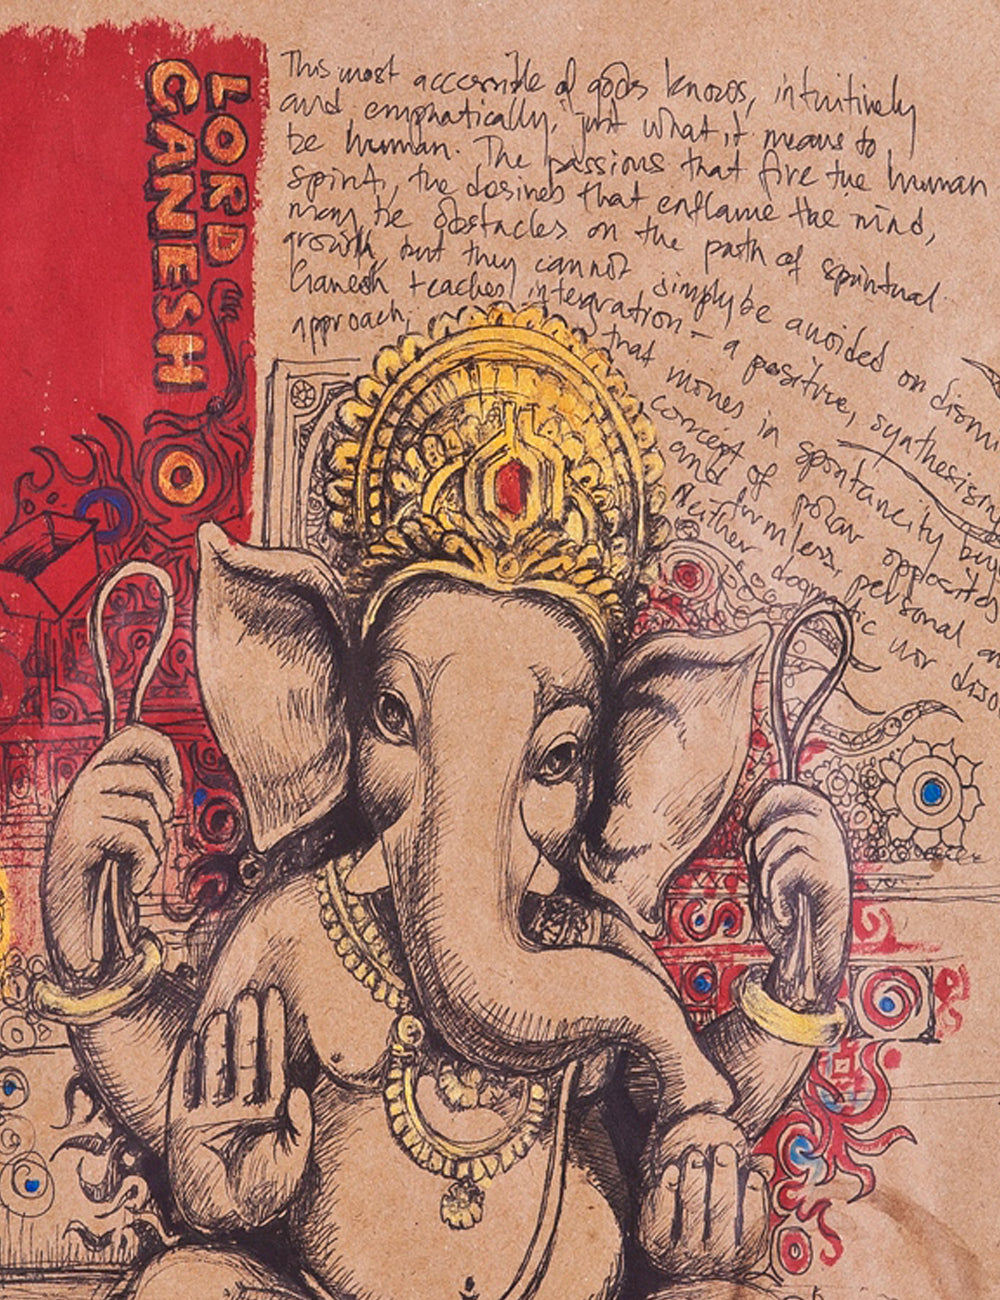 LORD
GANESH
This most accessible of gods knows, intuitively
and emphatically, just what it means to
be human. The passions that fire the human
spirit, the desires that enflame the mind,
may be obstacles on the path of spiritual
growth, but they cannot simply be avoided or dismi
Ganesh teaches integration – a positive, synthesising
approach, that moves in spontaneity
concept of polar opposites
and formless, personal
Neither dogmatic nor